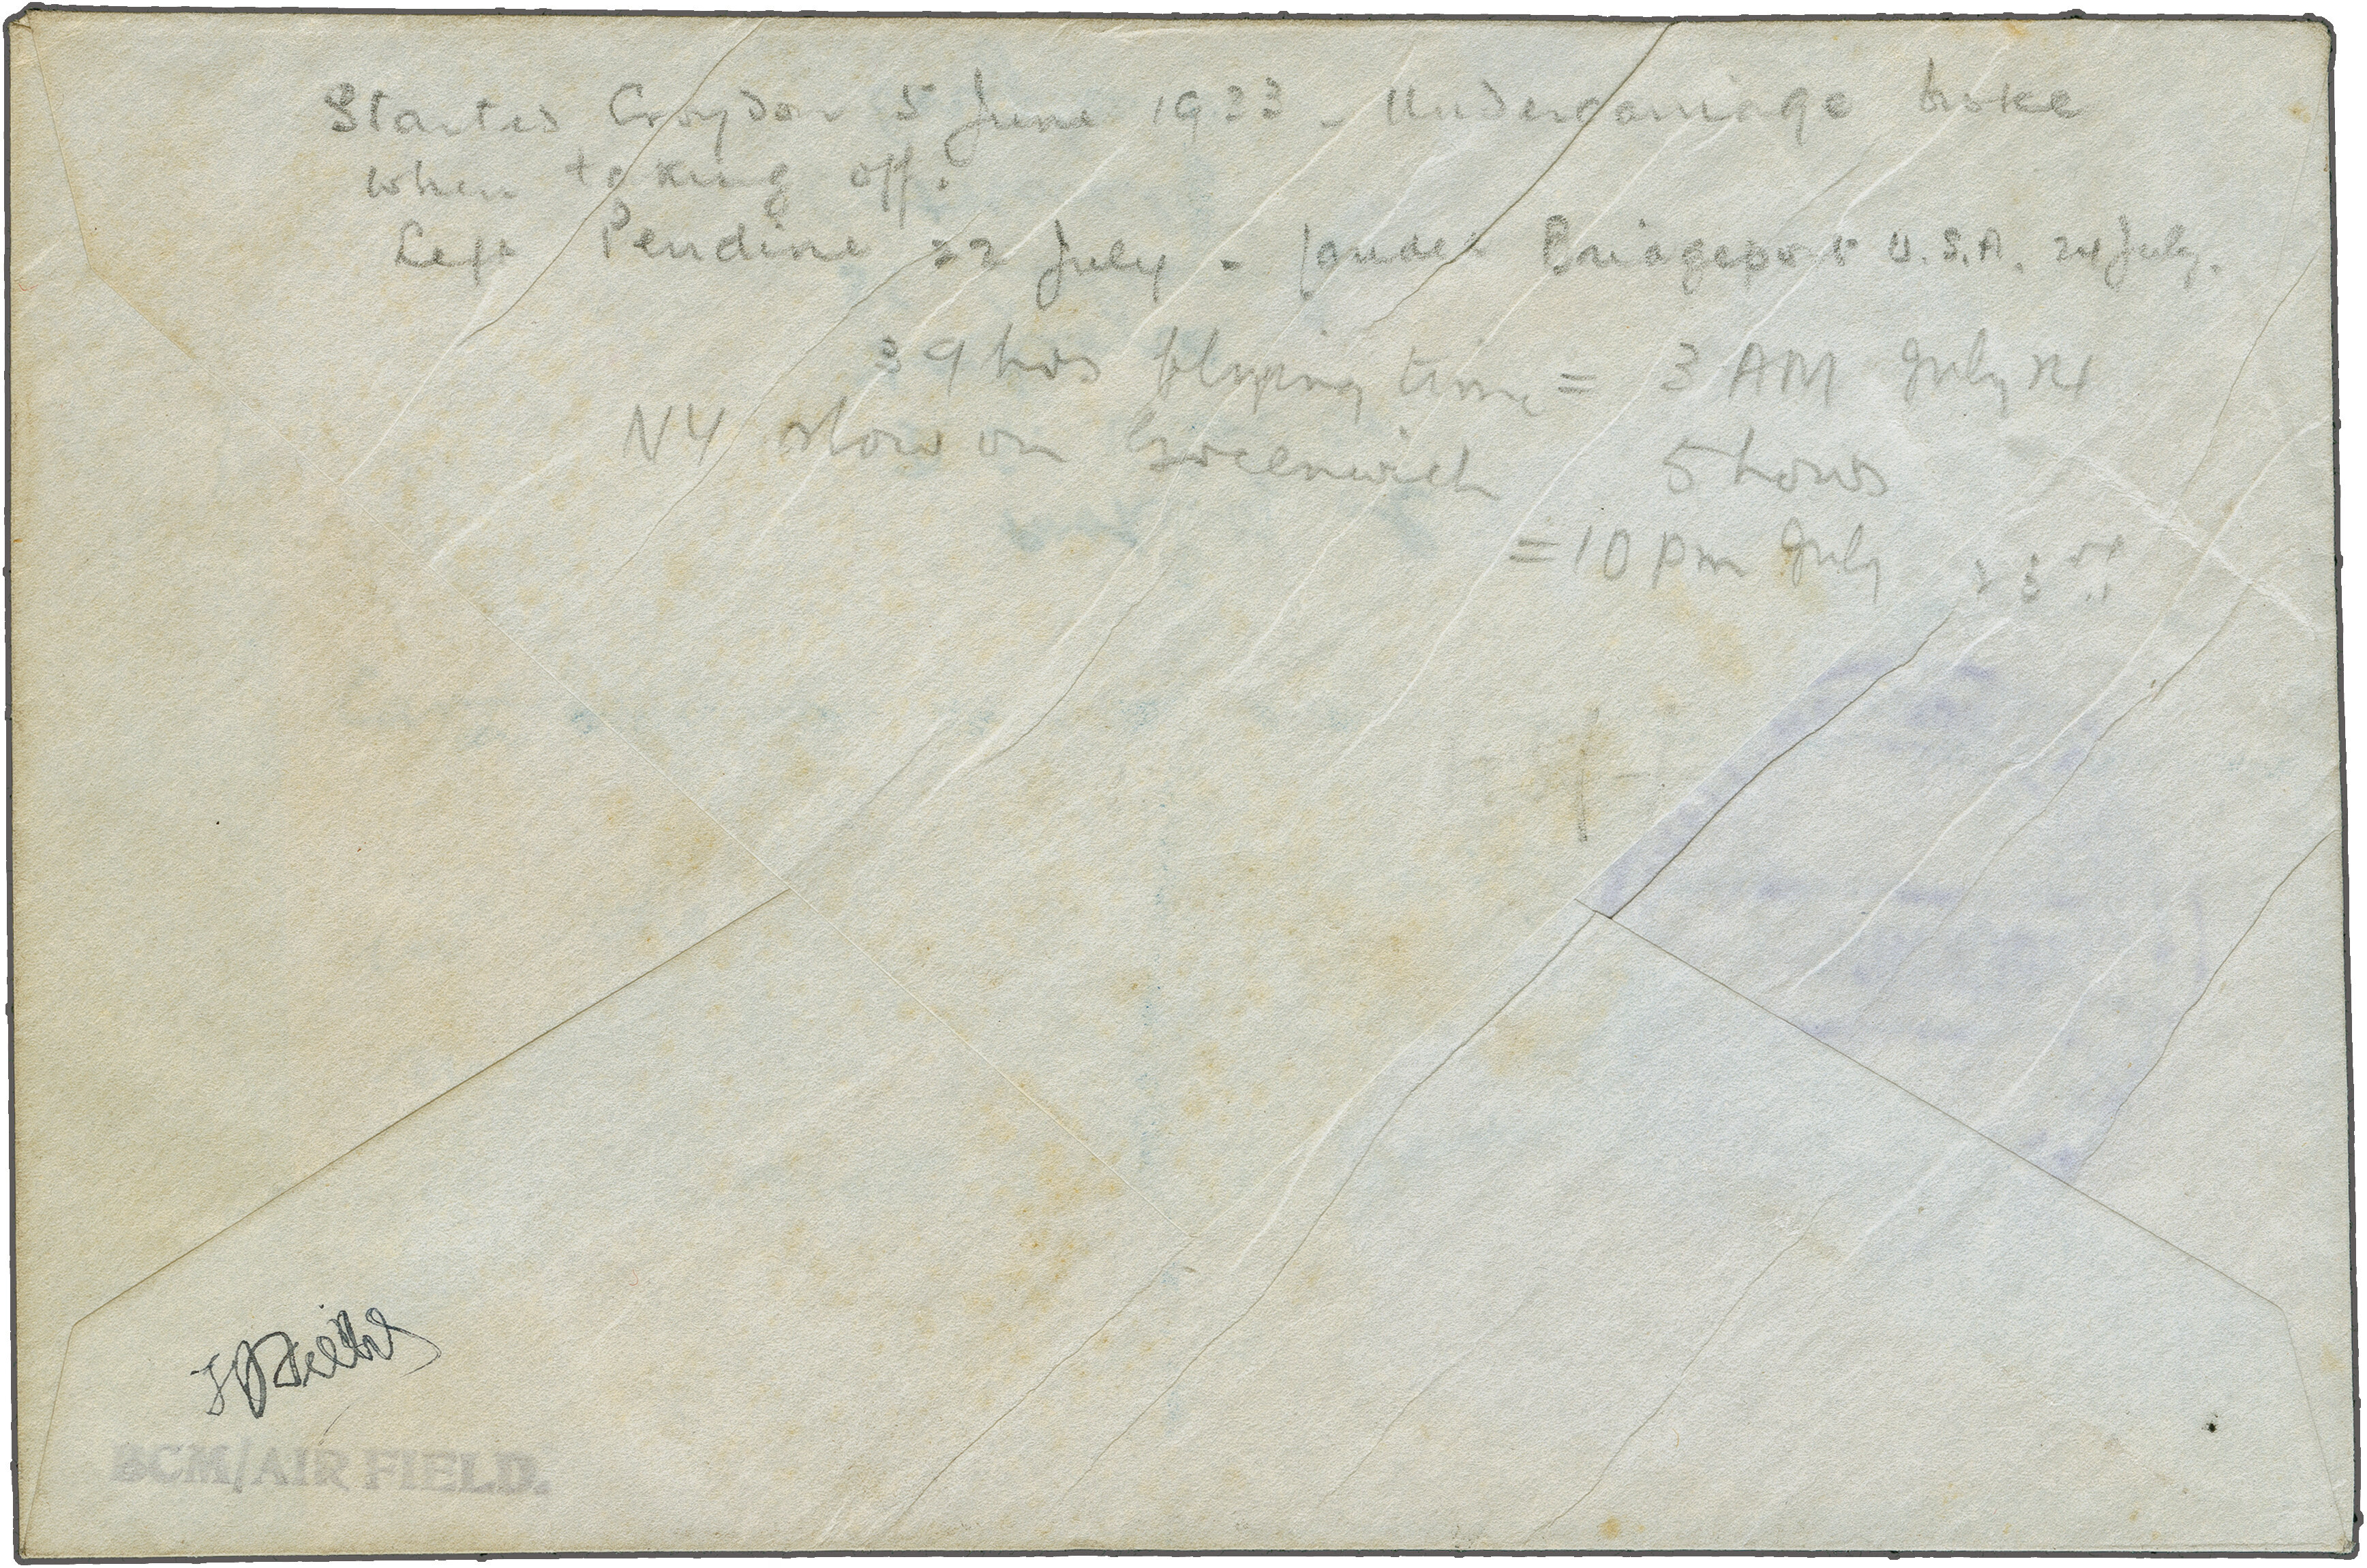 Started Croydon 5 June 1933 - Undercarriage broke
when taking off.
Left Pendine 22 July - landed Bridgeport U.S.A. 24 July.
39 hrs flying time = 3 AM July 24
NY slow on Greenwich 5 hours
= 10 pm July 23rd
BCM/AIR FIELD.